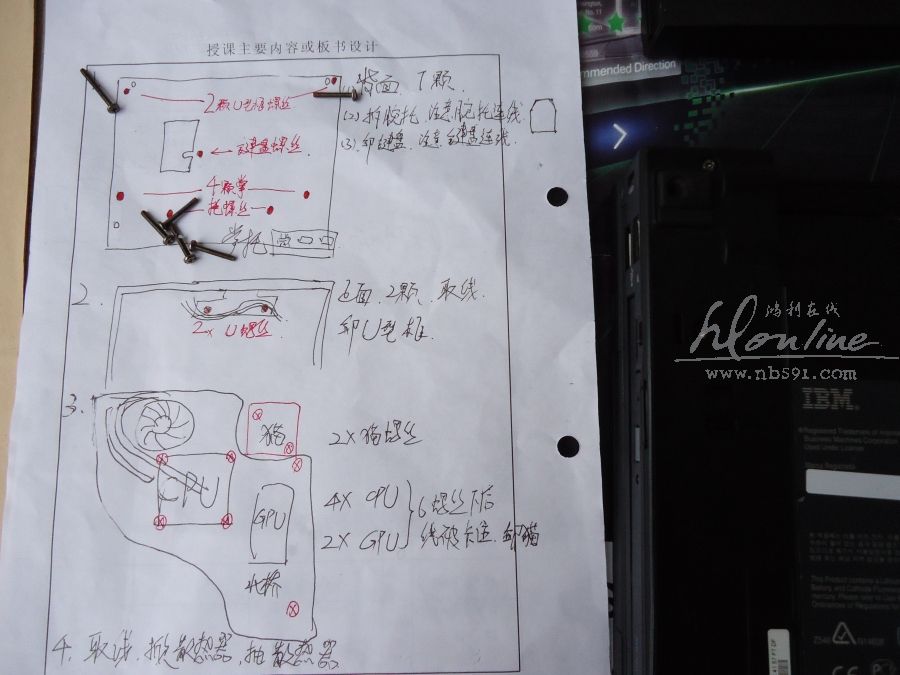 授课主要内容或板书设计
背面 7颗
2颗U型框螺丝
(2) 拆腕托, 注意腕托连线
(3) 卸键盘, 注意键盘连线
键盘螺丝
4颗掌
托螺丝
掌托
2.
2颗 取线
2x U螺丝
卸U型框
3.
猫
2X 猫螺丝
CPU
GPU
4X CPU
2X GPU
6螺丝下后
卸猫
北桥
4. 取线. 抓散热器, 抽散热器
mmended Direction
No. 11
鸿利在线
hlonline
www.nb591.com
IBM
Registered Trademark of Internat
Business Machines Corporation
Used Under License
N14608